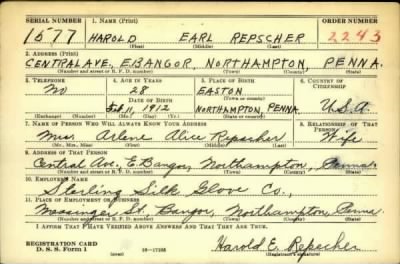 SERIAL NUMBER 1. NAME (Print) ORDER NUMBER
1577 HAROLD EARL REPSCHER 2243
(First) (Middle) (Last)
2. ADDRESS (Print)
CENTRAL AVE, E. BANGOR, NORTHAMPTON, PENNA.
(Number and street or R. F. D. number) (Town) (County) (State)
3. TELEPHONE 4. AGE IN YEARS 5. PLACE OF BIRTH 6. COUNTRY OF CITIZENSHIP
No 28 EASTON
DATE OF BIRTH (Town or county)
Feb. 1, 1912 NORTHAMPTON, PENNA. U.S.A.
(Exchange) (Number) (Mo.) (Day) (Yr.) (State or country)
7. NAME OF PERSON WHO WILL ALWAYS KNOW YOUR ADDRESS 8. RELATIONSHIP OF THAT PERSON
Mrs. Arlene Alice Repscher Wife
(Mr., Mrs., Miss) (First) (Middle) (Last)
9. ADDRESS OF THAT PERSON
Central Ave., E. Bangor, Northampton, Penna.
(Number and street or R. F. D. number) (Town) (County) (State)
10. EMPLOYER'S NAME
Sterling Silk Glove Co.,
11. PLACE OF EMPLOYMENT OR BUSINESS
Messinger St. Bangor, Northampton, Penna.
(Number and street or R. F. D. number) (Town) (County) (State)
I AFFIRM THAT I HAVE VERIFIED ABOVE ANSWERS AND THAT THEY ARE TRUE.
REGISTRATION CARD
D. S. S. Form 1 (over) 16—17105 Harold E. Repscher
(Registrant's signature)